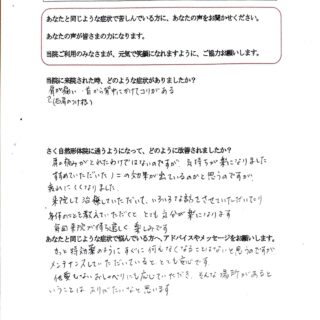 あなたと同じような症状で苦しんでいる方に、あなたの声をお聞かせください。
あなたの声が皆さまの力になります。
当院ご利用のみなさまが、元気で笑顔になれますように、ご協力お願いします。
当院に来院された時、どのような症状がありましたか？
肩が痛い・首から背中にかけてコリがある
さく自然形体院に通うようになって、どのように改善されましたか？
肩の痛みがとれたわけではないのですが、気持ちが楽になりました
すすめていただいた の効果が出ているのかと思うのですが、
疲れにくくなりました
来院して治療していただいて、いろいろな話をさせていただいたり
身体のことを教えていただくと とても気分が楽になります
毎回来院が待ち遠しく 楽しみです
あなたと同じような症状で悩んでいる方へ、アドバイスやメッセージをお願いします。
もっと特効薬のようにすぐに何もなくなることはないと思うのですが
メンテナンスしていただいていると、とても安心です
他愛もないおしゃべりにも応じていただき、そんな場所があると
いうことは ありがたいなと思います